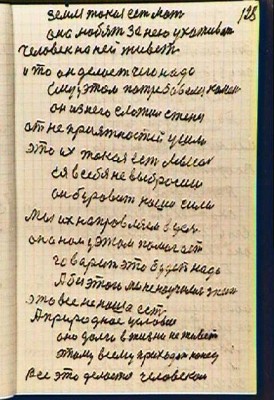 128
земля такая ест мат
она любят за нею ухаживат
Человек на ней живет
и то он делает чего надо
ему этом потребовался камен
он из него сложил стену
от не приятностей ушли
это их такая ест мысл
ся в себя не выбросиш
он бороват наши сили
Мы их направляем в дол
она нам у этом помогает
говарит это будет надо
Абы этого мы не научилис
это все не наша ест
А природное условие
оно долго в жизни не живет
этому всему приходит конец
все это делается человеком